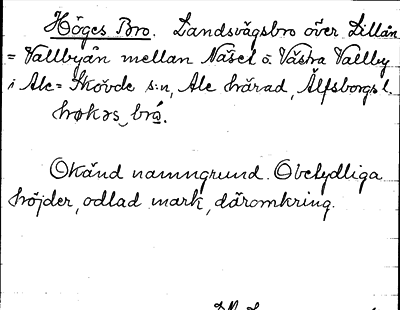 Höges Bro. Landsvägsbro över Lillån
= Vallbyån mellan Näset o. Västra Vallby
i Ale-Skövde s:n, Ale härad, Älfsborgs l.
Okänd namngrund. Obetydliga
höjder, odlad mark, däromkring.